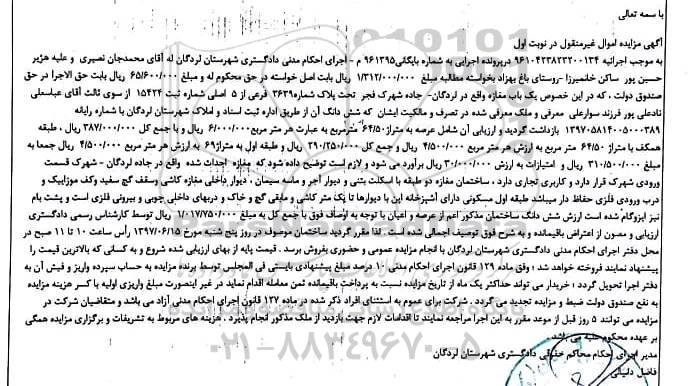 با سمه تعالی
آگهی مزایده اموال غیرمنقول در نوبت اول
به موجب اجرائیه ۹۶۱۰۴۲۳۸۲۳۲۰۰۱۳۴ درپرونده اجرایی به شماره بایگانی۹۶۱۳۹۵م - اجرای احکام مدنی دادگستری شهرستان لردگان له آقای محمدجان نصیری و علیه هژیر
حسین پور ساکن خانمیرزا –روستای باغ بهزاد بخواسته مطالبه مبلغ ۱/۳۱۲/۰۰۰/۰۰۰ ریال بابت اصل خواسته در حق محکوم له و مبلغ ۶۵/۶۰۰/۰۰۰ ریال بابت حق الاجرا در حق
صندوق دولت ، که در این خصوص یک باب مغازه واقع در لردگان- جاده شهرک فجر تحت پلاک شماره۳۶۳۹ فرعی از ۵ اصلی شماره ثبت ۱۵۴۲۴ از سوی ثالث آقای عباسعلی
نادعلی پور فرزند سوارعلی معرفی و ملک معرفی شده در تصرف و مالکیت ایشان که شش دانگ آن از طریق اداره ثبت اسناد و املاک شهرستان لردگان با شماره رایانه
۱۳۹۷۰۵۸۱۴۰۰۵۰۰۰۳۸۹ بازداشت گردید و ارزیابی آن شامل عرصه به متراژ۶۴/۵۰ مترمربع به عبارت هر متر مربع۶/۰۰۰/۰۰۰ ریال و با جمع کل ۳۸۷/۰۰۰/۰۰۰ ریال ، طبقه
همکف با متراژ ۶۴/۵۰ متر مربع به ارزش هر متر مربع ۴/۵۰۰/۰۰۰ ریال و جمع کل ۲۹۰/۲۵۰/۰۰۰ ریال و طبقه اول به متراژ۶۹ به ارزش هر متر مربع ۴/۵۰۰/۰۰۰ ریال جمعا به
مبلغ ۳۱۰/۵۰۰/۰۰۰ ریال و امتیازات به ارزش ۳۰/۰۰۰/۰۰۰ ریال برآورد می شود و لازم است توضیح داده شود که مغازه احداث شده واقع در جاده لردگان - شهرک قسمت
ورودی شهرک قرار دارد و کاربری تجاری دارد ، ساختمان مغازه دو طبقه با اسکلت بتنی و دیوار آجر و ماسه سیمان ، دیوار داخلی مغازه کاشی وسقف گچ سفید وکف موزاییک و
درب ورودی فلزی حفاظ دار میباشد طبقه اول مسکونی دارای آشپزخانه این با دیوارها تا یک متر کاشی و مابقی گچ و خاک و دربهای داخلی چوبی و بیرونی فلزی است و پشت بام
نیز ایزوگام شده است ارزش شش دانگ ساختمان مذکور اعم از عرصه و اعیان با توجه به اوصاف فوق با جمع کل به مبلغ ۱/۰۱۷/۷۵۰/۰۰۰ ریال توسط کارشناس رسمی دادگستری
ارزیابی و مصون از اعتراض باقیمانده و به شرح فوق توصیف اجمالی شده است . لذا مقرر گردید ساختمان موصوف در روز پنج شنبه مورخ ۱۳۹۷/۰۶/۱۵ رأس ساعت ۱۰ تا ۱۱ صبح در
محل دفتر اجرای احکام مدنی دادگستری شهرستان لردگان با انجام مزایده عمومی و حضوری بفروش برسد . قیمت پایه از بهای ارزیابی شده شروع و به کسانی که بالاترین قیمت را
پیشنهاد نمایند فروخته خواهد شد ؛ وفق ماده ۱۲۹ قانون اجرای احکام مدنی ۱۰ درصد مبلغ پیشنهادی بایستی فی المجلس توسط برنده مزایده به حساب سپرده واریز و فیش آن به
دفتر اجرا تحویل گردد ، خریدار می تواند حداکثر یک ماه از تاریخ مزایده نسبت به پرداخت باقیمانده ثمن معامله اقدام نماید در غیر اینصورت مبلغ واریزی اولیه با کسر هزینه مزایده
به نفع صندوق دولت ضبط و مزایده تجدید می گردد . شرکت برای عموم به استثنای افراد ذکر شده در ماده ۱۲۷ قانون اجرای احکام مدنی آزاد می باشد و متقاضیان شرکت در
مزایده می توانند ۵ روز قبل از موعد مقرر به این اجرا مراجعه نمایند تا اقدامات لازم جهت بازدید از ملک مذکور انجام پذیرد . هزینه های مربوط به تشریفات و برگزاری مزایده همگی
بر عهده محکوم علیه می باشد.
مدیر اجرای احکام محاکم حقوقی دادگستری شهرستان لردگان
۰۲۱-۸۸۳۴۹۶۷۰-۵